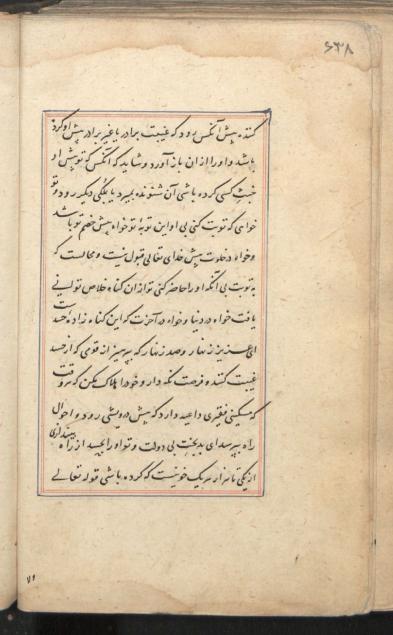 ۶۳۸
کننده پیش آنکس رود که غیبت برادر یا غیر برادر پیش او کرده
باشد و او را از ان باز آورد و شاید که آنکس که تو پیش او
غیبت کسی کرده باشی آن شنونده بمیرد یا بملکی دیگر رود و تو
خواهی که توبت کنی بی او این توبه تو خواه پیش خصم تو باشد
و خواه در خلوت پیش خدای تعالی قبول نیست و محالست که
به توبت بی آنکه او را حاضر کنی تو از ان کناه خلاص توانی
یافت خواه در دنیا و خواه در آخرت که این کناه زاده حسد است
ای عزیز زنهار و صد زنهار که بپرهیز از قومی که از حسد
غیبت کننده فرصت نکه دار و خود را هلاک مکن که هر وقت
که مسکینی فقیری داعیه دارد که پیش درویشی رود و احوال
راه بپرسد ای بدبخت بی دولت و تو او را بحسد از راه بیندازی
از نیکی تا نزار هر یک خونیست که کرده باشی قوله تعالی
۷۱